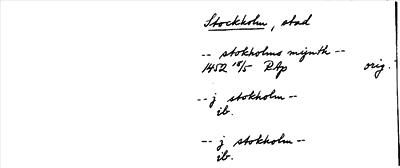 Stockholm, stad
-- stokholms mijnth --
1452 18/5 RAp orig.
-- j stokholm --
ib.
-- j stokholm --
ib.